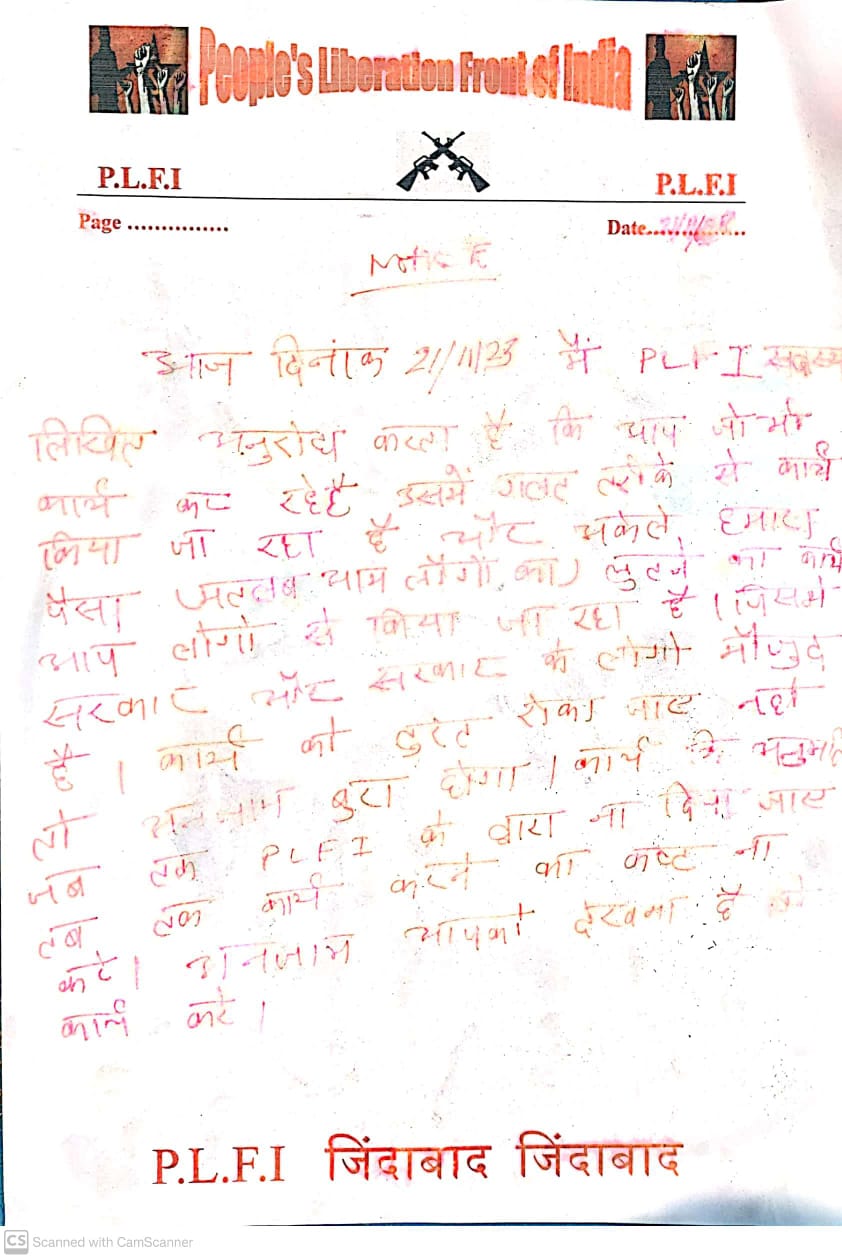 People's Liberation Front of India
P.L.F.I P.L.F.I
Page ............... Date..21/11/23..
NoticE
आज दिनांक 21/11/23 मैं PLFI सदस्य
लिखित अनुरोध करता है कि आप जो भी
कार्य कर रहे है उसमें गलत तरीके से कार्य
किया जा रहा है और अकेले हमारा
पैसा मतलब आम लोगों का लुटने का कार्य
आप लोगो से किया जा रहा है। जिसमे
सरकार और सरकार के लोगो मौजुद
है। कार्य को तुरंत रोका जाए नही
तो अनजाम बुरा होगा। कार्य कि अनुमति
जब तक PLFI के द्वारा ना दिया जाए
तब तक कार्य करने का कष्ट ना
करे। अनजाम आपको देखना है तो
कार्य करे।
P.L.F.I जिंदाबाद जिंदाबाद
CS Scanned with CamScanner